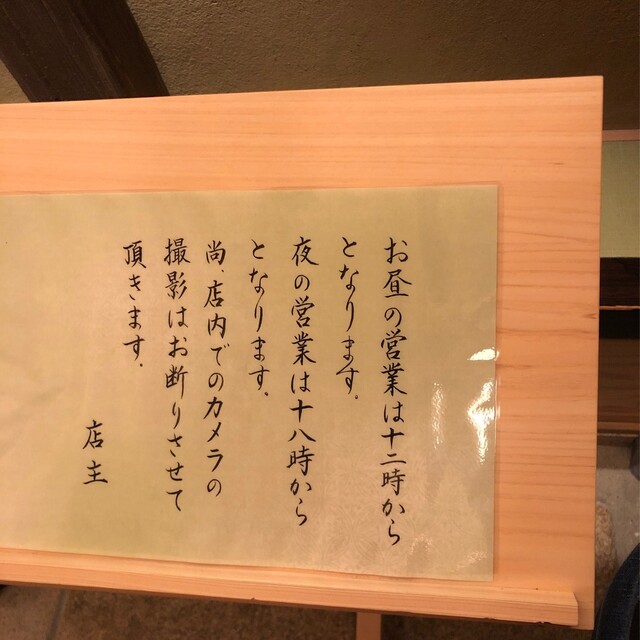 お昼の営業は十二時から
となります。
夜の営業は十八時から
となります、
尚、店内でのカメラの
撮影はお断りさせて
頂きます、
店主